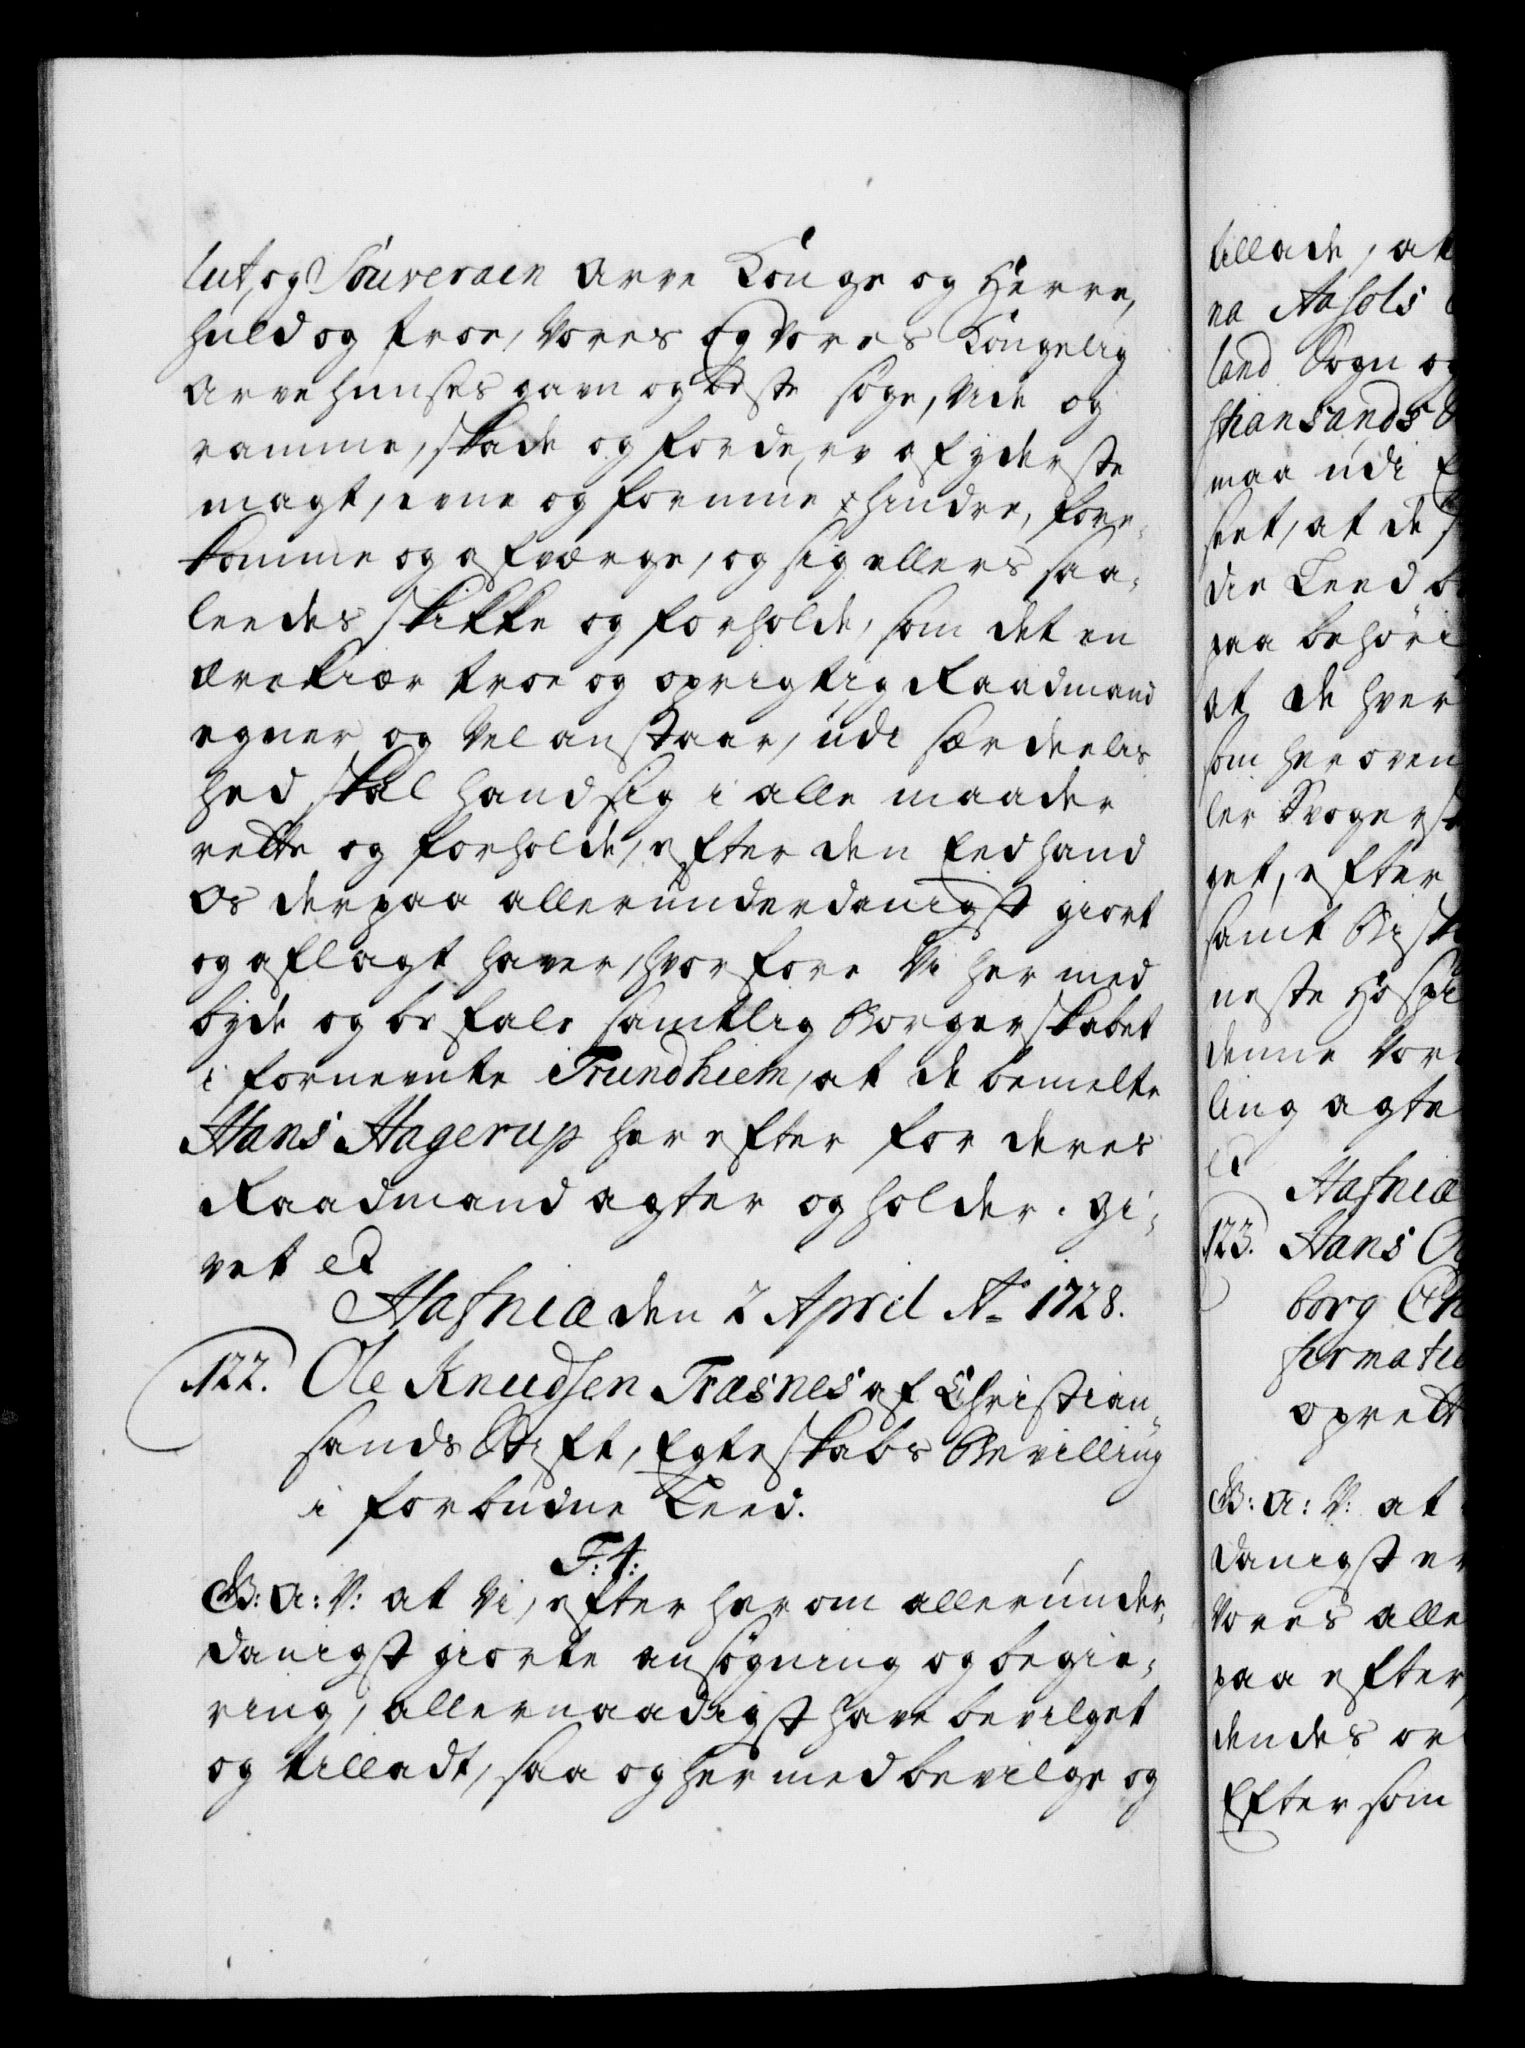 lut, og Souverain Arve Konge og Herre,
huld og troe, Vores og Vores Kongelig
Arvehuuses gavn og beste søge, Vide og
ramme, skade og forderv af yderste
magt, evne og formue hindre, fore-
komme og afverge, og sig ellers saa-
leedes skikke og forholde, som det en
ærekiær troe og oprigtig Raadmand
egner og Vel anstaar, udi særdeelis
hed skal hand sig i alle maader
rette og forholde, efter den Eed hand
Os derpaa allerunderdanigst giort
og aflagt haver, hvorfore Vi her med
byde og befale samtlig Borgerskabet
i fornevnte Trundhiem, at de bemelte
Hans Hagerup her efter for deres
Raadmand agter og holder. Gi-
vet etc
Hafniæ den 2 April Ao 1728.
122. Ole Knudsen Træsnes af Christian-
sands Stift, Egteskabs Bevilling
i forbudne Leed.
F: 4:
G: A: V: at Vi, efter her om allerunder-
danigst giorte ansøgning og begie-
ring, allernaadigst have bevilget
og tilladt, saa og hermed bevilge og
tillade, at
na Aasols
land Sogn og
stiansands
maa udi
seet, at de
die Leed
paa behøri
at de hver
som her oven
ler Svogerst
get, efter
samt
neste Hospi
denne Vor
ling agte
etc
Hafniæ
123. Hans
borg
firmati
oprett
G: A: V: at
danigst er
Vores alle
paa efter
dendes or
Eftersom